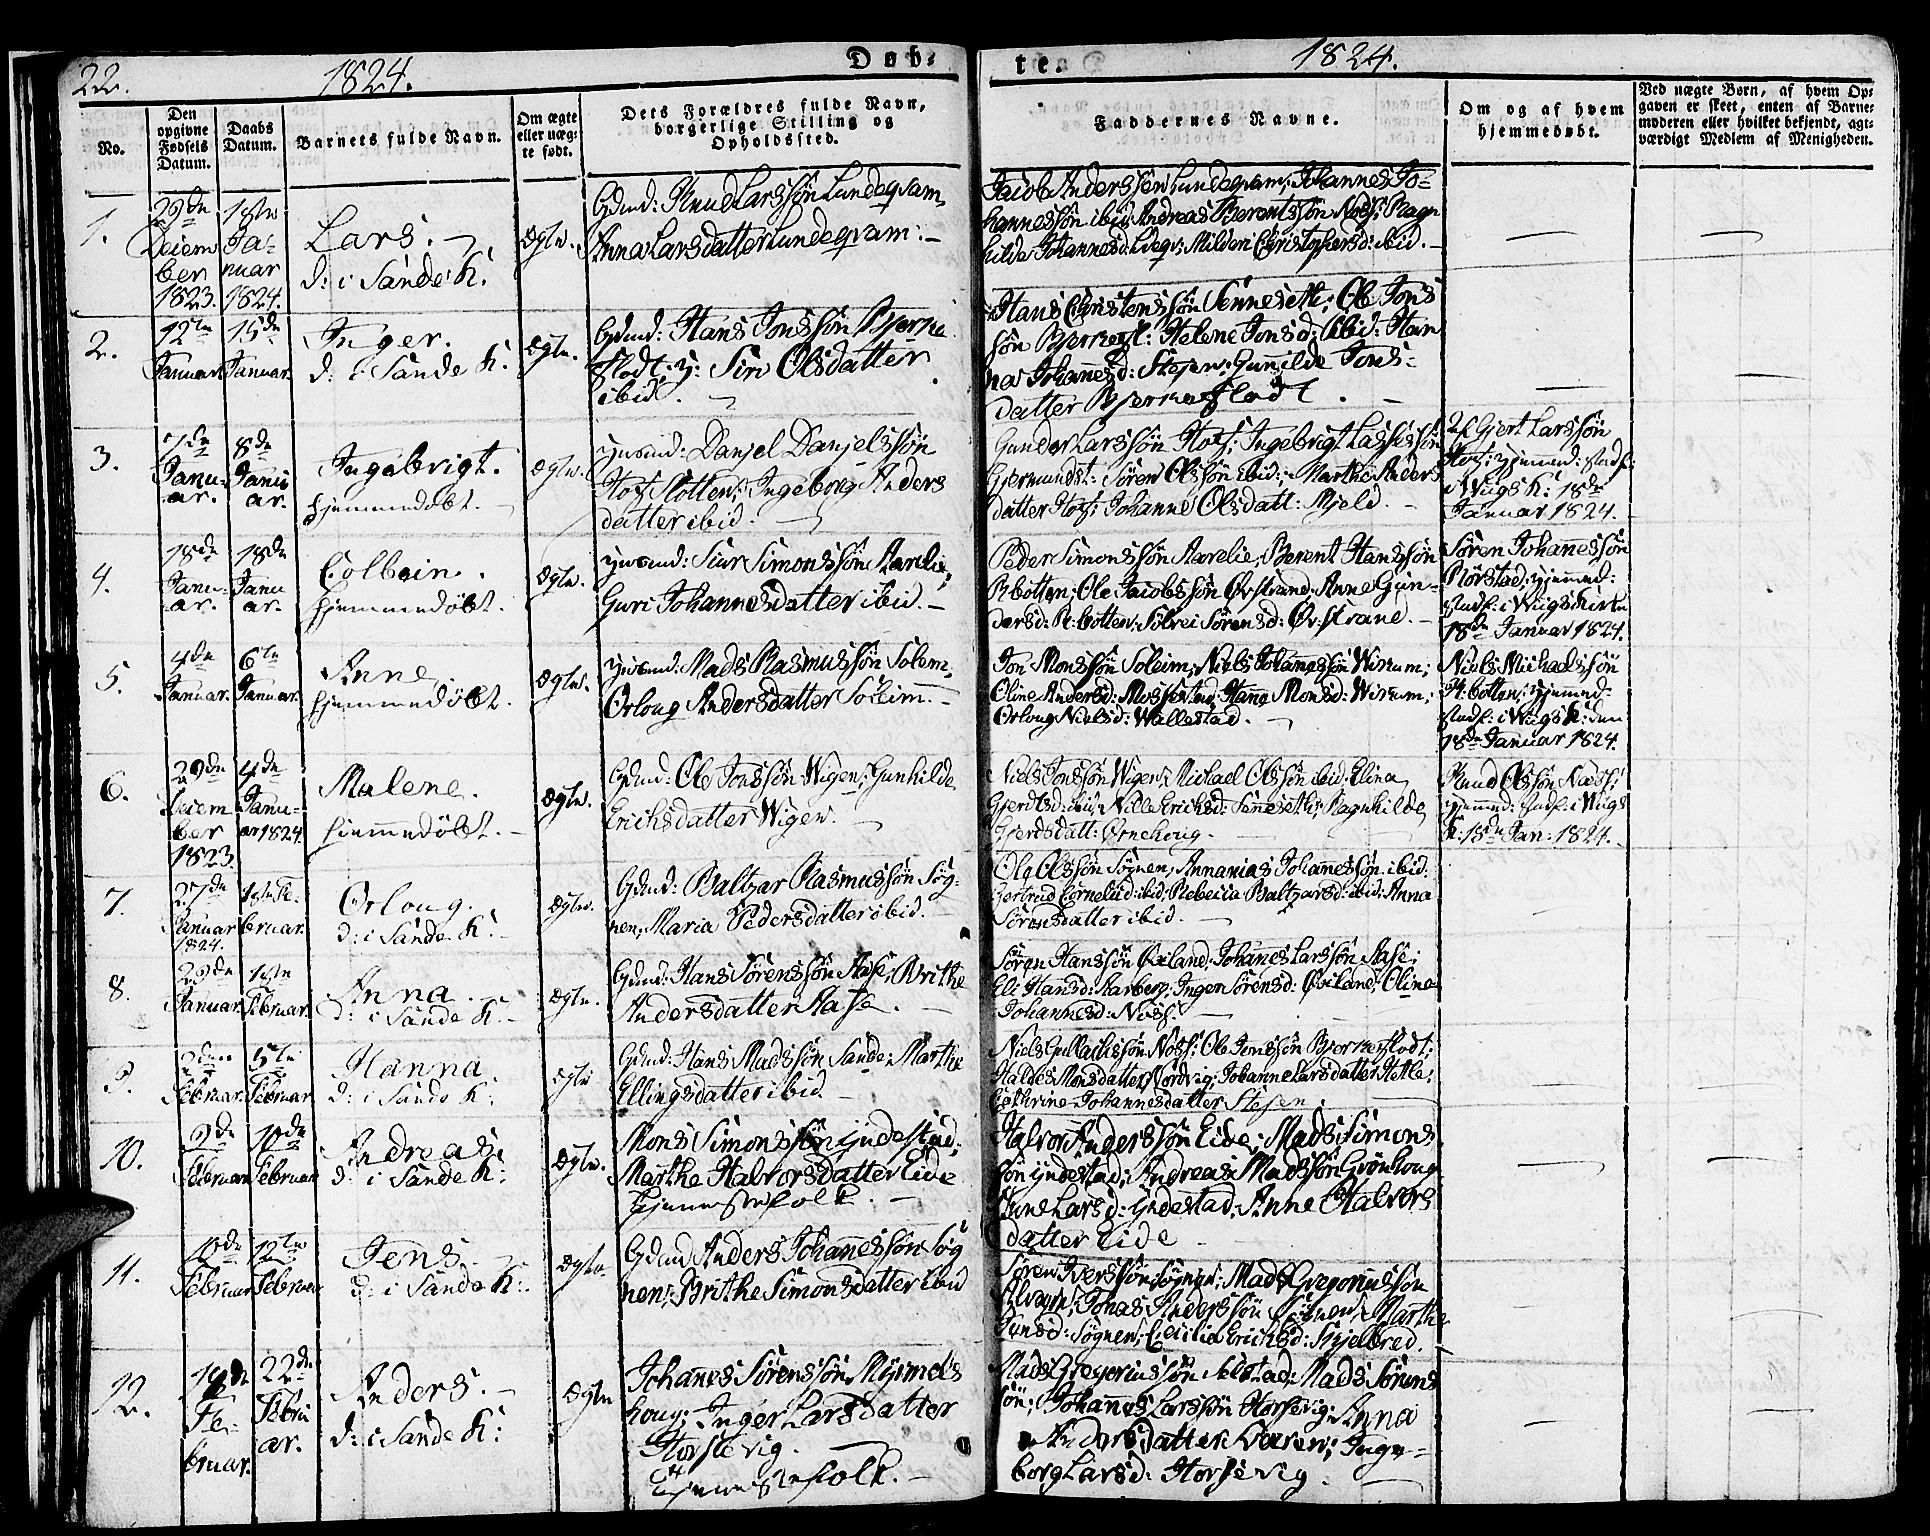 22.
1824.
Døb-
te.
1824.
No.
Den opgivne Fødsels Datum.
Daabs Datum.
Barnets fulde Navn.
Om ægte eller uæg-
te født.
Dets Forældres fulde Navn,
borgerlige Stilling og
Opholdssted.
Faddernes Navne.
Om og af hvem
hjemmedøbt.
Ved uægte Børn, af hvem Op-
gaven er skeet, enten af Barne-
moderen eller hvilket bekjendt, agt-
værdigt Medlem af Menigheden.
1.
29de
Decem
ber
1823.
1ste
Ja-
nuar
1824.
Lars.
d: i Sande K:
Ægte.
Gdmd: Knud Larssøn Lundeqvam,
Anna Larsdatter Lundeqvam.
Jacob Anderssøn Lundeqvam; Johannes Jo-
hannessøn ibid; Andreas Berentssøn Nøss; Ragn
hilde Johannesd: Ldeqv; Milderi Christophersd: ibid.
2.
12te
Januar.
15de
Januar.
Inger.
d: i Sande K.
Ægte.
Gdmd: Hans Jonssøn Bjerke
flodt; Siri Olsdatter
ibid.
Hans Christenssøn Senneseth; Ole Jons
søn Bjerkefl: Helene Jonsd: ibid: Han
na Johannesd: Stejen; Gunilde Jons-
datter Bjerkeflodt.
3.
7de
Janu-
ar.
8de
Janu
ar.
Ingebrigt.
hjemmedøbt.
Ægte.
Huusmd: Danjel Danjelssøn
Hofslotten; Ingeborg Anders
datter ibid.
Gunder Larssøn Hofs; Ingebrigt Lassessøn
Gjermundst: Søren Olssøn ibid; Marthe Anders
datter Hofs; Johanne Olsdatt: Mjeld.
af Gjert Larssøn
Hofs; hjemmed: stadf:
i Wiigs K: 18de
Januar 1824.
4.
18de
Janu-
ar.
18de
Janu
ar.
Colbein.
hjemmedøbt.
Ægte.
Huusmd: Siur Simonssøn Aarelie,
Guri Johannesdatter ibid.
Peder Simonssøn Aarelie; Berent Hanssøn
R botten; Ole Jacobssøn Øvstrand; Anne Gun-
dersd: R-botten; Sølvei Sørensd: Øv.strand.
Søren Johannessøn
Rørstad; hjemmed:
stadf: i Wiigs Kirke
18de Januar 1824.
5.
4de
Januar.
6te
Januar.
Anne.
hjemmedøbt.
Ægte.
Huusmd: Mads Rasmussøn Solem,
Orloug Andersdatter Soleim.
Jon Monssøn Soleim; Niels Johannessøn Wirum;
Oline Andersd: Mossestad; Hanne Monsd: Wirum;
Orloug Nielsd: Wallestad.
Niels Michaelssøn
R-botten; hjemmed-
stadf: i Wiigs K: den
18de Januar 1824.
6.
29de
Decem
ber
1823.
4de
Janu-
ar 1824.
Malene.
hjemmedøbt.
Ægte.
Gdmd: Ole Jonssøn Wigen; Gunhilde
Erichsdatter Wigen.
Niels Jonssøn Wigen; Michael Olssøn ibid; Elina
Gjerdtsd: ibid; Nille Erichsd: Senneseth; Ragnhilde
Gjerdsdatt: Ørnehoug.
Knud Olssøn Næss;
hjemmed: stadf: i Wiigs
K: 18de Jan: 1824.
7.
27de
Januar
1824.
1ste Fe-
bruar.
Orloug.
d: i Sande K:
Ægte.
Gdmd: Baltzar Rasmussøn Søg-
nen; Maria Pedersdatter ibid.
Ole Olssøn Søgnen; Annanias Johannessøn ibid;
Gjertrud Corneliid: ibid; Rebecca Baltzarsd: ibid; Anna
Sørensdatter ibid.
8.
29de
Januar
1ste
Februar.
Anna.
d: i Sande K:
Ægte.
Gdmd: Hans Sørenssøn Aase; Brithe
Andersdatter Aase.
Søren Hanssøn Øviland; Johannes Larssøn Aase;
Eli Hansd: Aarberg; Inger Sørensd: Øviland; Oline
Johannesd: Nøss.
9.
2den
Februar.
5te
Februar.
Hanna
d: i Sande K:
Ægte
Gdmd: Hans Madssøn Sande; Marthe
Ellingsdatter ibid.
Niels Gullachssøn Nøss; Ole Jenssøn Bjerkeflodt;
Haldis Monsdatter Nordvig; Johanne Larsdatter Hetle;
Cathrine Johannesdatter Stejen.
10.
9de
Februar
10de
Februar
Andreas
d: i Sande K:
Ægte.
Mons Simonssøn Yndestad;
Marthe Halvorsdatter Eide
Tjenestefolk.
Halvor Anderssøn Eide; Mads Simons
søn Yndestad; Andreas Madssøn Grønhoug
Larsd: Yndestad; Anne Halvors
datter Eide
11.
10de
Februar
12te
Februar
Jens.
d: i Sande K:
Ægte.
Gdmd Anders Johannessøn Søg
nen; Brithe Simonsdatter ibid
Søren Iverssøn Søgnen; Mads Gregoriussøn
Jonas Anderssøn Søgnen; Marthe
Jensd: Søgnen; Cecilia Erichsd: Skjelbred.
12.
10de
Fe-
bruar.
22de
Febru
ar.
Anders.
d: i Sande K:
Ægte
Johannes Sørenssøn Myrmels
houg; Inger Larsdatter
Horsevig.
Tjenestefolk.
Mads Gregoriussøn Selstad; Mads Sørens
søn; Johannes Larssøn Horsevig; Anna
Andersdatter Inge-
borg Larsd: Horsevig.